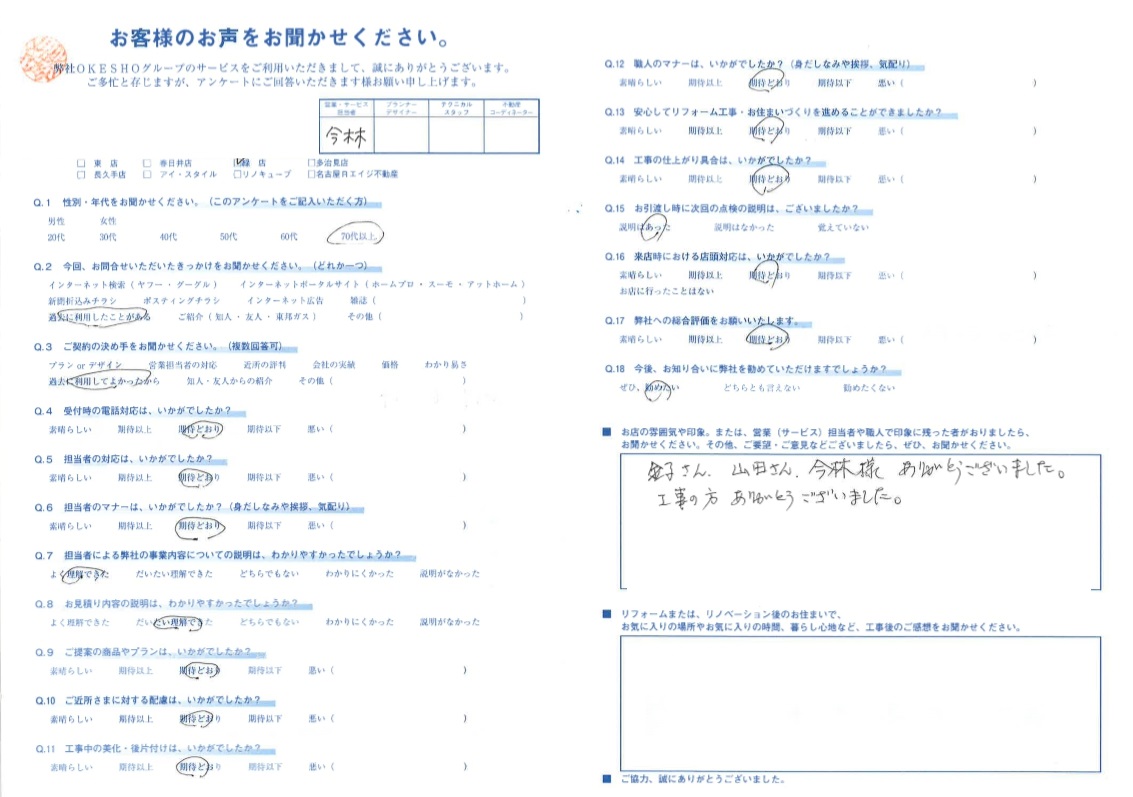 お客様のお声をお聞かせください。
弊社OKESHOグループのサービスをご利用いただきまして、誠にありがとうございます。
ご多忙と存じますが、アンケートにご回答いただきます様お願い申し上げます。
営業・サービス担当者 プランナーデザイナー テクニカルスタッフ 不動産コーディネーター
今林
□ 東 店 □ 春日井店 □緑 店 □多治見店
□ 長久手店 □ アイ・スタイル □リノキューブ □名古屋月エイジ不動産
Q.1 性別・年代をお聞かせください。（このアンケートをご記入いただく方）
男性 女性
20代 30代 40代 50代 60代 70代以上
Q.2 今回、お問合せいただいたきっかけをお聞かせください。（どれか一つ）
インターネット検索（ ヤフー ・ グーグル ） インターネットポータルサイト（ ホームプロ ・ スーモ ・ アットホーム ）
新聞折込みチラシ ポスティングチラシ インターネット広告 雑誌（ ）
過去に利用したことがある ご紹介（ 知人 ・ 友人 ・ 東邦ガス ） その他（ ）
Q.3 ご契約の決め手をお聞かせください。（複数回答可）
プラン or デザイン 営業担当者の対応 近所の評判 会社の実績 価格 わかり易さ
過去に利用してよかったから 知人・友人からの紹介 その他（ ）
Q.4 受付時の電話対応は、いかがでしたか？
素晴らしい 期待以上 期待どおり 期待以下 悪い（ ）
Q.5 担当者の対応は、いかがでしたか？
素晴らしい 期待以上 期待どおり 期待以下 悪い（ ）
Q.6 担当者のマナーは、いかがでしたか？（身だしなみや挨拶、気配り）
素晴らしい 期待以上 期待どおり 期待以下 悪い（ ）
Q.7 担当者による弊社の事業内容についての説明は、わかりやすかったでしょうか？
よく理解できた だいたい理解できた どちらでもない わかりにくかった 説明がなかった
Q.8 お見積り内容の説明は、わかりやすかったでしょうか？
よく理解できた だいたい理解できた どちらでもない わかりにくかった 説明がなかった
Q.9 ご提案の商品やプランは、いかがでしたか？
素晴らしい 期待以上 期待どおり 期待以下 悪い（ ）
Q.10 ご近所さまに対する配慮は、いかがでしたか？
素晴らしい 期待以上 期待どおり 期待以下 悪い（ ）
Q.11 工事中の美化・後片付けは、いかがでしたか？
素晴らしい 期待以上 期待どおり 期待以下 悪い（ ）
Q.12 職人のマナーは、いかがでしたか？（身だしなみや挨拶、気配り）
素晴らしい 期待以上 期待どおり 期待以下 悪い（ ）
Q.13 安心してリフォーム工事・お住まいづくりを進めることができましたか？
素晴らしい 期待以上 期待どおり 期待以下 悪い（ ）
Q.14 工事の仕上がり具合は、いかがでしたか？
素晴らしい 期待以上 期待どおり 期待以下 悪い（ ）
Q.15 お引渡し時に次回の点検の説明は、ございましたか？
説明はあった 説明はなかった 覚えていない
Q.16 来店時における店頭対応は、いかがでしたか？
素晴らしい 期待以上 期待どおり 期待以下 悪い（ ）
お店に行ったことはない
Q.17 弊社への総合評価をお願いいたします。
素晴らしい 期待以上 期待どおり 期待以下 悪い（ ）
Q.18 今後、お知り合いに弊社を勧めていただけますでしょうか？
ぜひ、勧めたい どちらとも言えない 勧めたくない
■ お店の雰囲気や印象。または、営業（サービス）担当者や職人で印象に残った者がおりましたら、
お聞かせください。その他、ご要望・ご意見などございましたら、ぜひ、お聞かせください。
金子さん、山田さん、今林様 ありがとうございました。
工事の方 ありがとうございました。
■ リフォームまたは、リノベーション後のお住まいで、
お気に入りの場所やお気に入りの時間、暮らし心地など、工事後のご感想をお聞かせください。
■ ご協力、誠にありがとうございました。